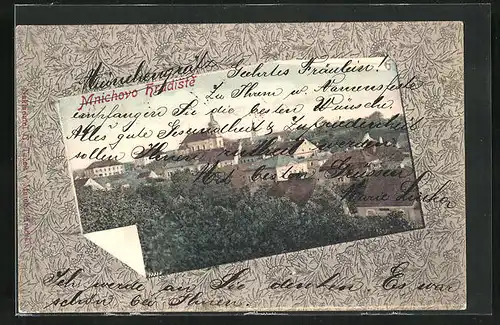 Münchengrätz
Mnichovo Hradiště
Geehrtes Fräulein!
Zu Ihrem w. Namensfeste
empfangen Sie die besten Wünsche.
Alles gute Gesundheit & Zufriedenheit
sollen Ihnen zu Theil werden.
Mit besten Grüssen
Marie
Ich werde an Sie denken. Es war
schön bei Ihnen.